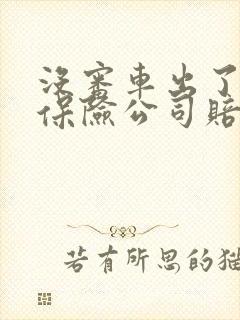 没審車出了
保險公司賠
若有所思的猫